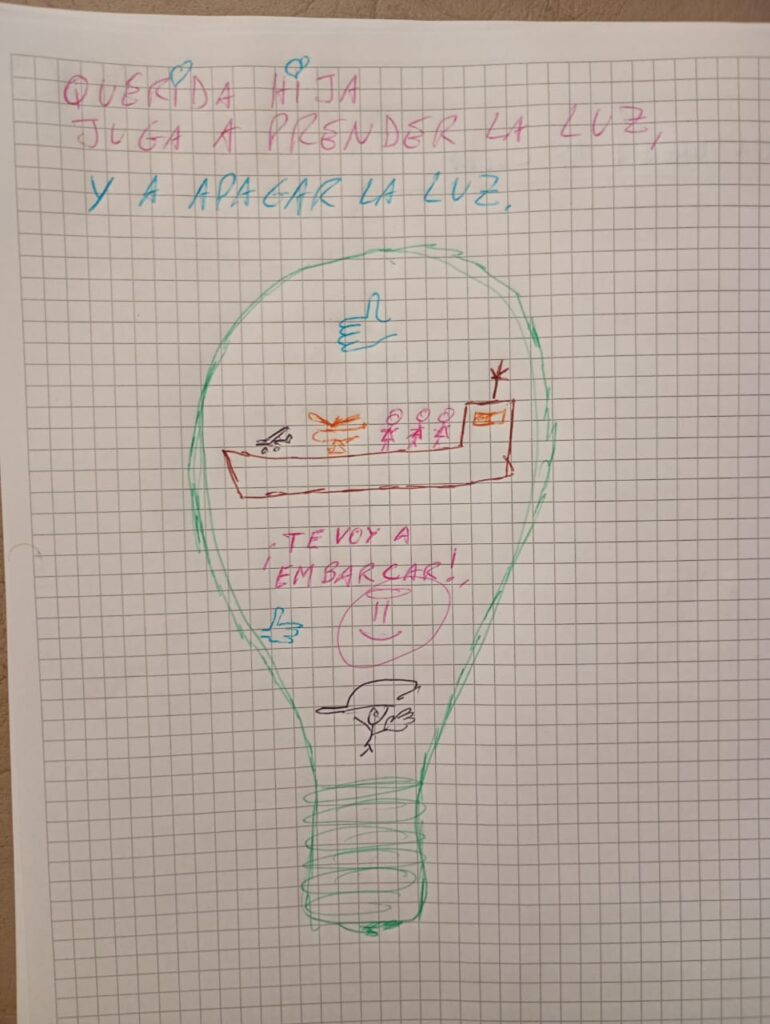 QUERIDA HIJA
JUGA A PRENDER LA LUZ,
Y A APAGAR LA LUZ.
¡TE VOY A
EMBARCAR!